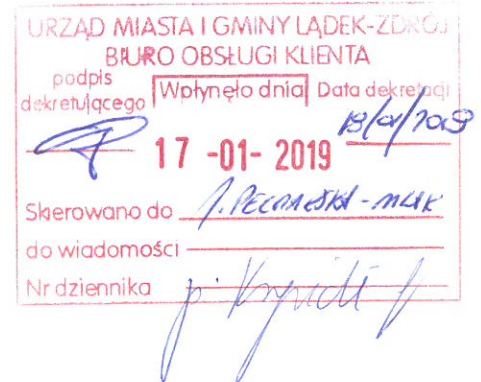 URZĄD MIASTA I GMINY LĄDEK-ZDRÓJ
BIURO OBSŁUGI KLIENTA
podpis dekretującego Wpłynęło dnia Data dekretacji
17 -01- 2019
Skierowano do
do wiadomości
Nr dziennika